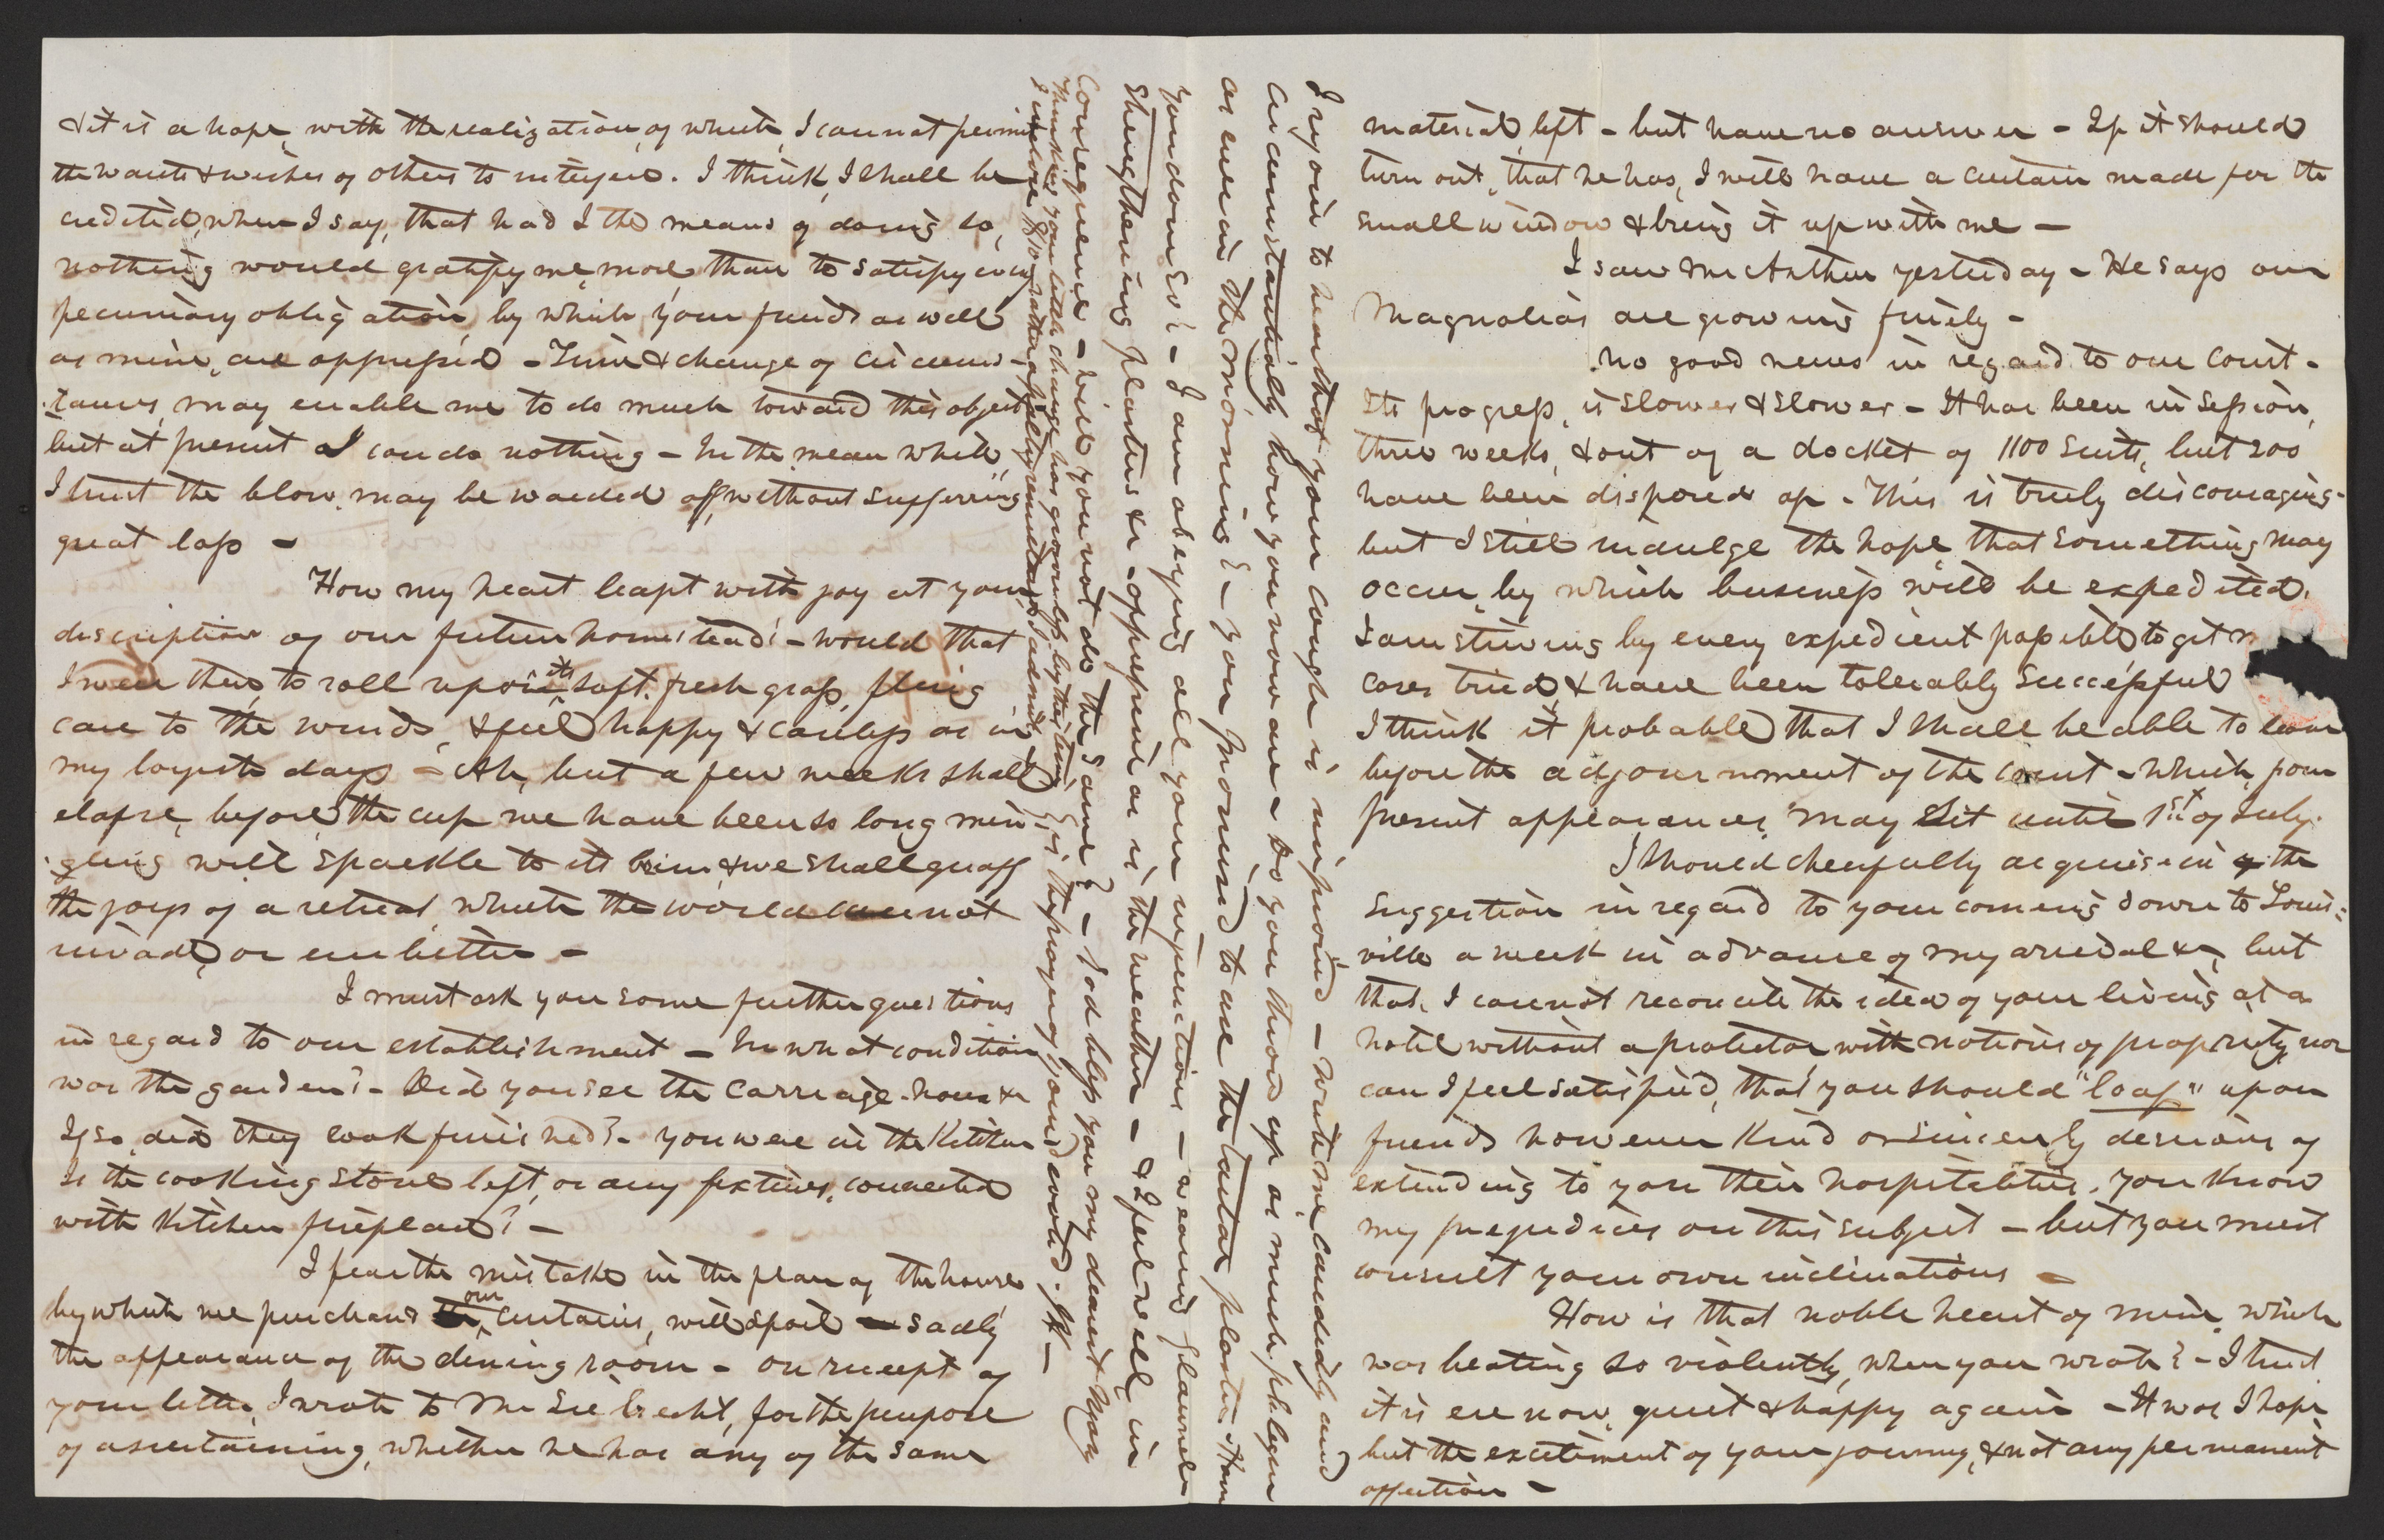 & it is a hope, with the realization of which, I cannot permit
the wants & wishes of others to interfere. I think, I shall be
credited, when I say, that had I the means of doing so,
nothing would gratify me more, than to satisfy every
pecuniary obligation, by which your friends as well
as mine, are oppressed - Time & change of circum-
stances, may enable me to do much toward this object
but at present I can do nothing - In the mean while,
I trust the blow may be warded off without suffering
great loss -
How my heart leapt with joy at your
description of our future homestead! - would that
I were there, to roll upon its soft fresh grass, fling
care to the winds, & feel happy & careless as in
my boyish days - Ah, but a few weeks shall
elapse, before the cup we have been so long min-
gling will sparkle to its brim & we shall quaff
the joys of a retreat which the world cannot
invade, or embitter -
I must ask you some further questions
in regard to our establishment - In what condition
was the garden? - Did you see the Carriage-house &c
If so did they look finished? - you were in the Kitchen
Is the cooking stove left, or any fixtures, connected
with Kitchen fireplace? -
I fear the mistake in the plan of the house
by which we purchased our curtains, will spoil sadly
the appearance of the dining room - on receipt of
your letter, I wrote to Mr Siebrecht, for the purpose
of ascertaining, whether he has any of the same
material left - but have no answer - If it should
turn out, that he has, I will have a curtain made for the
small window & bring it up with me -
I saw McArthur yesterday - He says our
Magnolias are growing finely -
No good news in regard to our Court -
Its progress, is slower & slower - It has been in session,
three weeks, & out of a docket of 1100 suits, but 200
have been disposed of - This is truly discouraging -
but I still indulge the hope, that something may
occur, by which business will be expedited.
I am striving by every expedient possible to get
cases tried, & have been tolerably successful
I think it probable that I shall be able to leave
before the adjournment of the Court - which, from
present appearances, may sit until 1st of July.
I should cheerfully acquiesce in the
suggestion in regard to your coming down to Louis-
ville a week in advance of my arrival &c, but
that, I cannot reconcile the idea of your living at a
hotel without a protector with notions of propriety, nor
can I feel satisfied, that you should "loaf" upon
friends however kind or sincerely desirous of
extending to you their hospitalities. You know
my prejudices on this subject - but you must
consult your own inclinations -
How is that noble heart of mine which
was beating so violently, when you wrote? - I trust
it is ere now, quiet & happy again - It was I hope,
but the excitement of your journey, & not any permanent
affection -
I rejoice to hear that your cough is improved - Write me candidly and
circumstantially how you now are - Do you throw up as much phlegm
as ever in the morning? - You promised to use the tartar plaster & Have
you done so? - I am obeying all your injunctions - wearing flannels
strengthening plasters &c - oppressive as is the weather - & I feel well in
consequence - will you not do the same? - God help you my dearest
Thinking your little change has grown less by this time,
I enclose $10 rather a paltry remittance I admit,